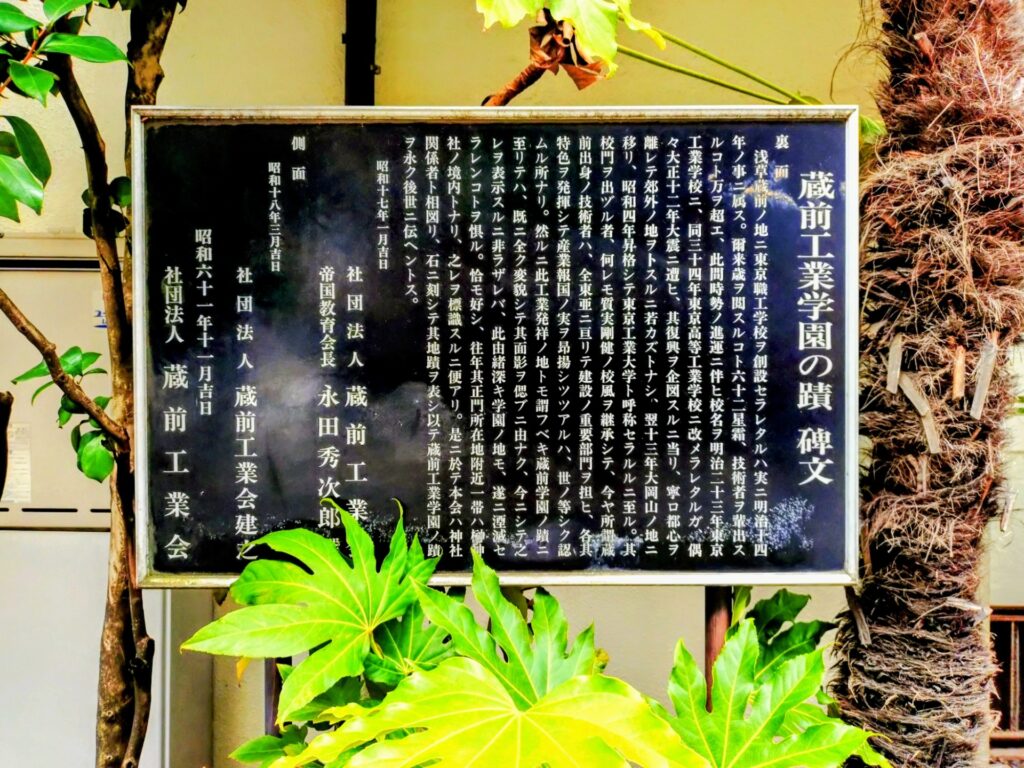 蔵前工業学園の蹟 碑文
裏面
浅草蔵前ノ地ニ東京職工学校ヲ創設セラレタルハ実ニ明治十四
年ノ事ニ属ス。爾来歳ヲ閲スルコト六十二星霜、技術者ヲ輩出ス
ルコト万ヲ超エ、此間時勢ノ進運ニ伴ヒ校名ヲ明治二十三年東京
工業学校ニ、同三十四年東京高等工業学校ニ改メラレタルガ、偶
々大正十二年大震ニ遭ヒ、其復興ヲ企図スルニ当リ、寧ロ都心ヲ
離レテ郊外ノ地ヲトスルニ若カズトナシ、翌十三年大岡山ノ地ニ
移リ、昭和四年昇格シテ東京工業大学ト呼称セラルルニ至ル。其
校門ヲ出ヅル者、何レモ質実剛健ノ校風ヲ継承シテ、今ヤ所謂蔵
前出身ノ技術者ハ、全東亜ニ亘リテ建設ノ重要部門ヲ担ヒ、各其
特色ヲ発揮シテ産業報国ノ実ヲ昂揚シツツアルハ、世ノ等シク認
ムル所ナリ。然ルニ此工業発祥ノ地トモ謂フベキ蔵前学園ノ蹟ニ
至リテハ、既ニ全ク変貌シテ其面影ヲ偲ブニ由ナク、今ニシテ之
レヲ表示スルニ非ラザレバ、此由緒深キ学園ノ地モ、遂ニ湮滅セ
ラレンコトヲ惧ル。恰モ好シ、往年其正門所在地附近一帯ハ榊神
社ノ境内トナリ、之レヲ標識スルニ便アリ。是ニ於テ本会ハ神社
関係者ト相図リ、石ニ刻シテ其地蹟ヲ表シ以テ蔵前工業学園ノ蹟
ヲ永ク後世ニ伝ヘントス。
昭和十七年一月吉日
社団法人 蔵前工業
帝国教育会長 永田秀次郎
側面
昭和十八年三月吉日
社団法人 蔵前工業会建之
昭和六十一年十一月吉日
社団法人 蔵前工業会